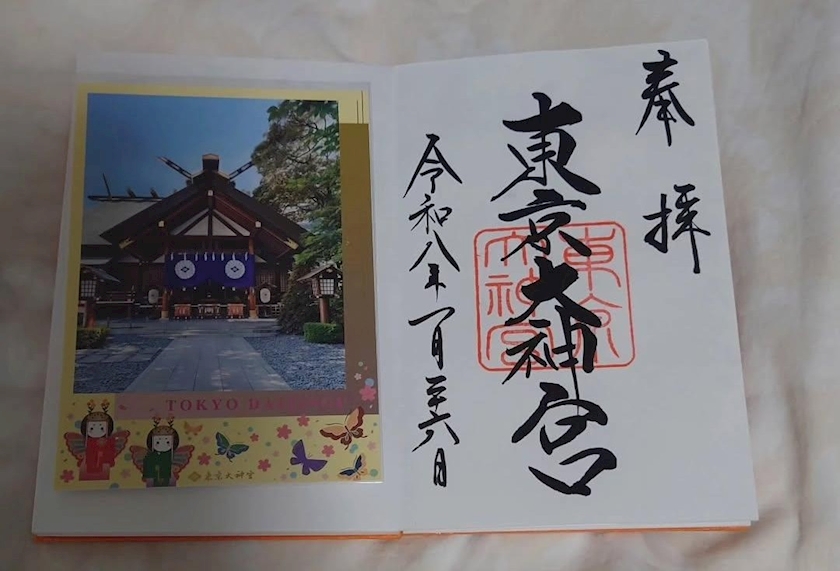 奉拝
東京大神宮
東京大神宮
令和八年一月二十六日
TOKYO DAIJINGU
東京大神宮